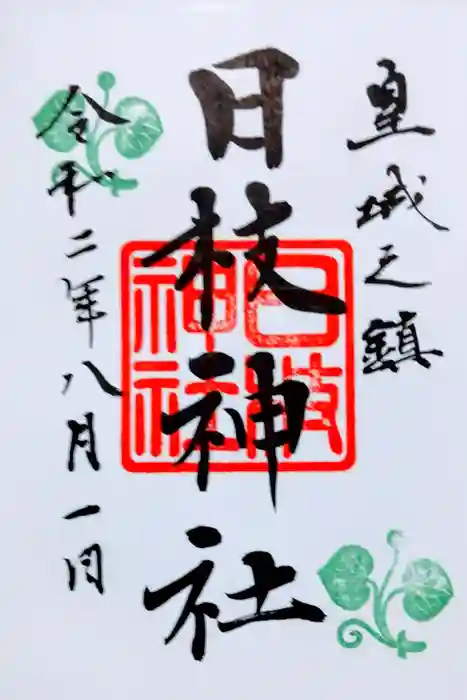 皇城之鎮
日枝神社
日枝
神社
令和二年八月一日